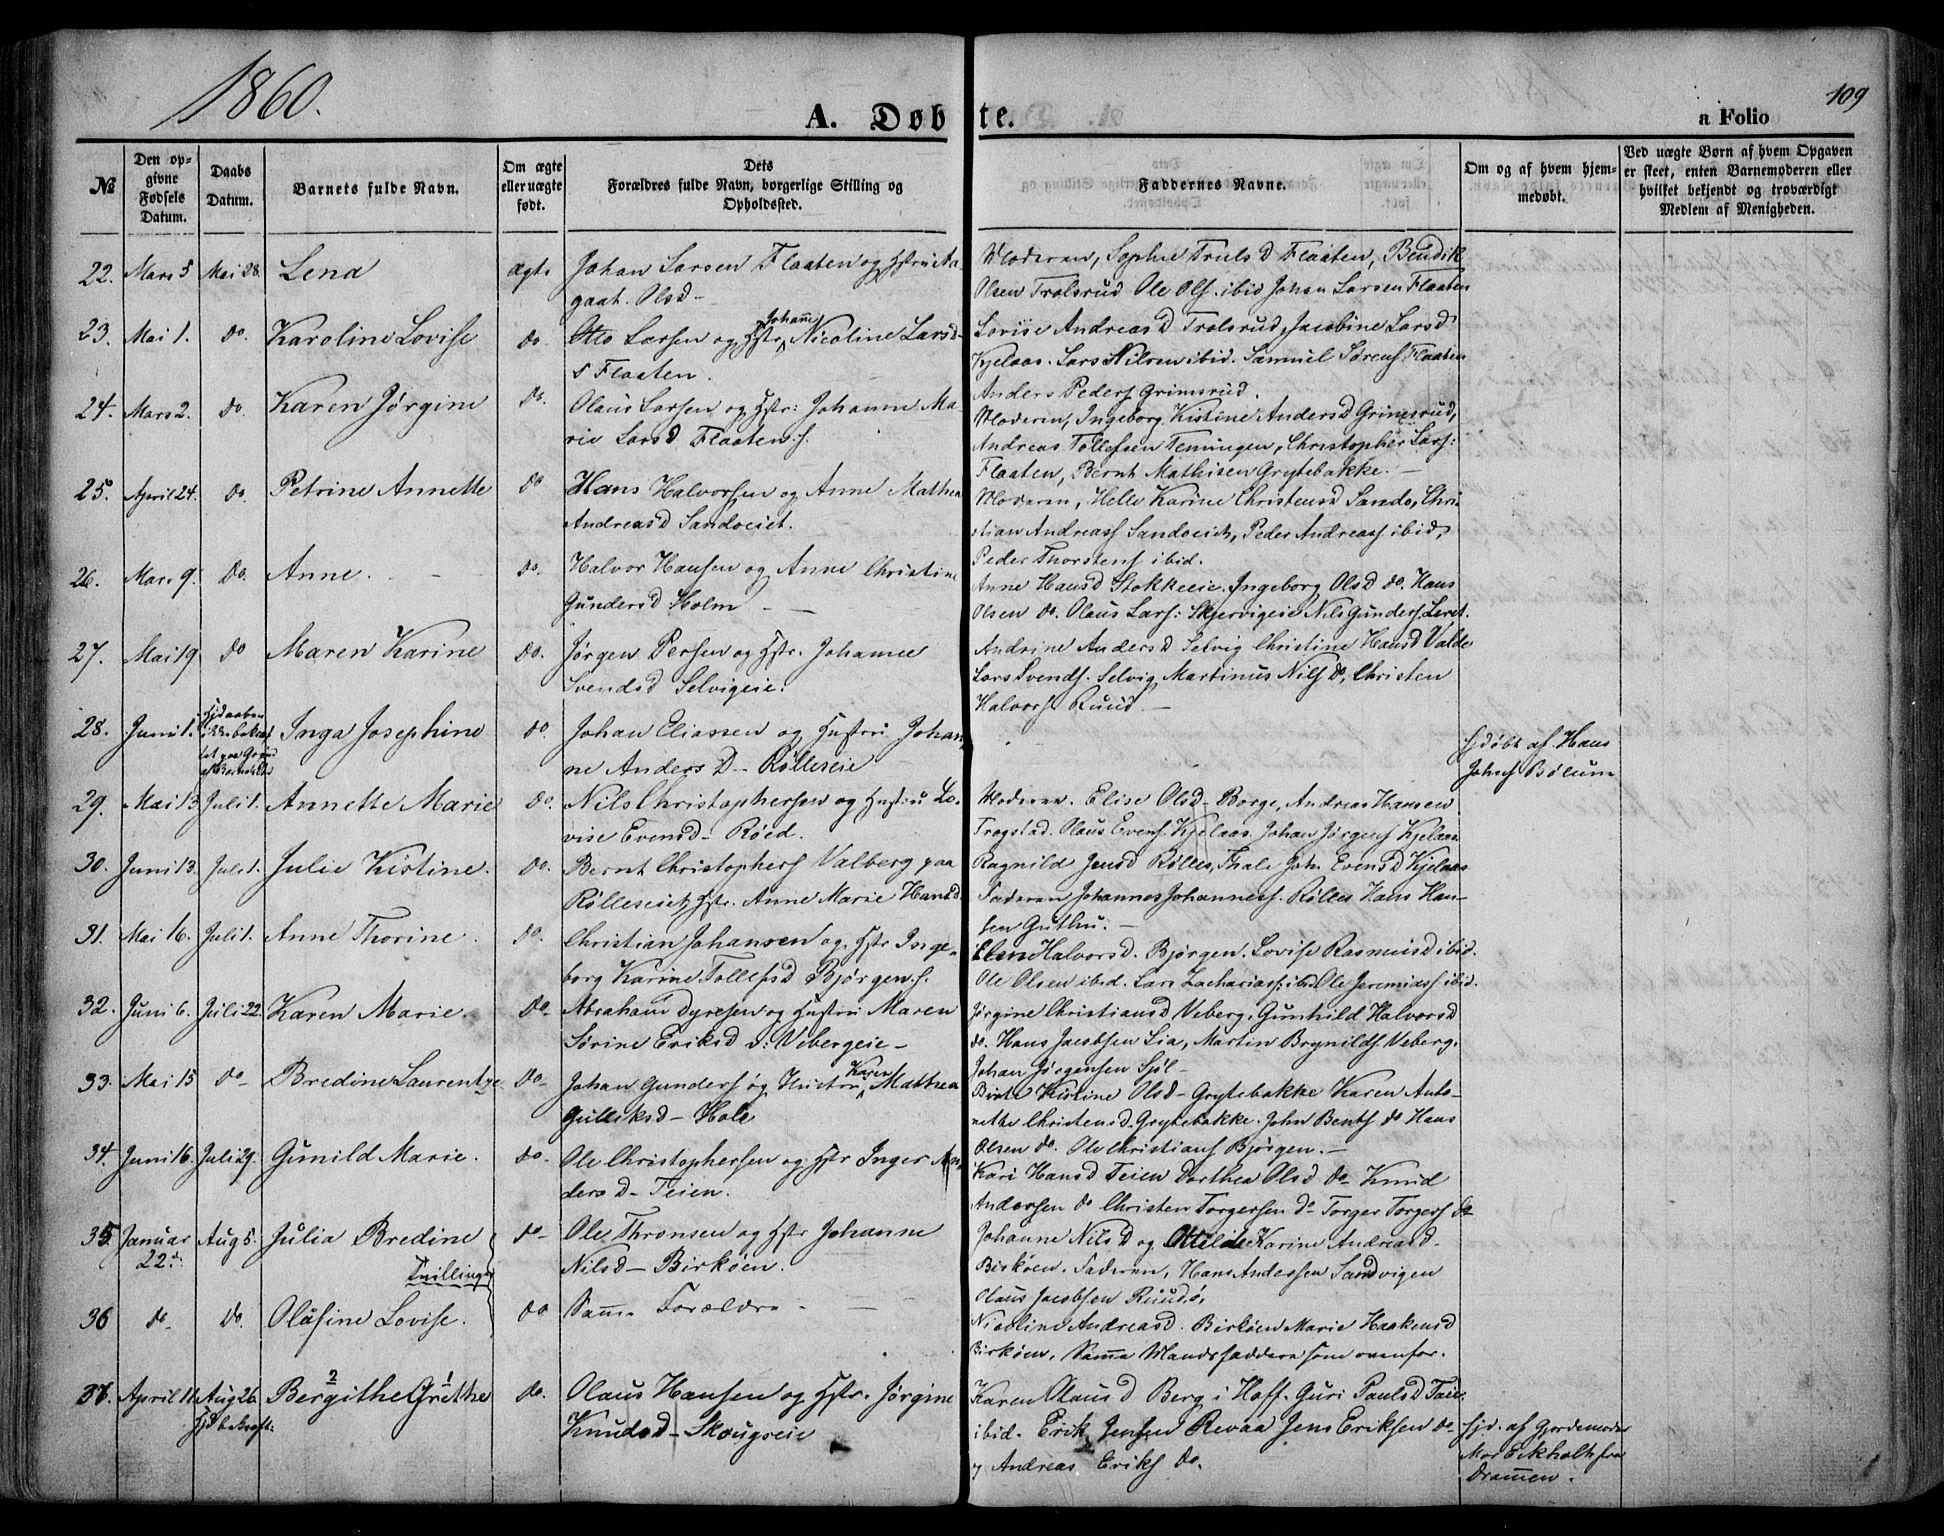 1860.
A. Døbte.
a Folio
109
№
Den opgivne Fødsels Datum.
Daabs Datum.
Barnets fulde Navn.
Om ægte eller uægte født.
Dets Forældres fulde Navn, borgerlige Stilling og Opholdssted.
Faddernes Navne.
Om og af hvem hjemmedøbt.
Ved uægte Børn af hvem Opgaven er skeet, enten Barnemoderen eller hvilket bekjendt og troværdigt Medlem af Menigheden.
22. Mars 5 Mai 28. Lena ægte Johan Larsen Flaaten og Hstru Aa-
gaat. Olsd-
Moderen, Sophie Truls D Flaaten, Bendik
Olsen Trolsrud Ole Ols. ibid Johan Larsen Flaaten
23. Mai 1. do. Karoline Lovise do Otto Larsen og Hstr. Johañe Nicoline Larsd-
s Flaaten.
Lovise Andreas D Trolsrud, Jacobine Larsd
Kjelaas. Lars Nilsen ibid. Samuel Sørens Flaaten
Anders Peders Grimsrud.
24. Mars 2. do. Karen Jørgine do. Olaus Larsen og Hstr: Johanne Ma-
rie Lars D Flaaten s.
Moderen, Ingeborg Kistine Anders D Grimsrud,
Andreas Tollefsen Temingen, Christopher Lars:
Flaaten, Bernt Mathisen Grytebakke. -
25. April 24. do. Petrine Annette do Hans Halvorsen og Anne Mathea
Andreas D Sandoeiet.
Moderen, Helle Karine Christensd Sando, Chri-
stian Andreass Sandoeiet, Peder Andreass ibid,
Peder Thorstens ibid.
26. Mars 9. do. Anne. do. Halvor Hansen og Anne Christine
Gundersd Holm
Anne Hansd Stokkeeie. Ingeborg Olsd do. Hans
Olsen do. Olaus Lars: Skjervigeie Nils Gunders Leret.
27. Mai 19. do Maren Karine do. Jørgen Persen og Hstr. Johanne
Svendsd Selvigeie.
Andrine Anders D Selvig Christine Hansd Valde
Lars Svends. Selvig Martinus Nils do, Christen
Halvors Ruud -
28. Juni 1. Inga Josephine do. Johan Eliassen og Hustru Johan-
ne Anders D- Rølleseie
Hjdøbt af Hans
Johns Bølum
29. Mai 13 Juli 1. Annette Marie do. Nils Christophersen og Hustru Lo-
vise Evensd- Røed.
Moderen. Elise Olsd- Borge, Andreas Hansen
Trogstad. Olaus Evens Kjelaas. Johan Jørgens Kjelaas
30. Juni 13. Juli 1. Julie Kistine. do. Bernt Christophers Valberg paa
Rølleseiet, Hstr. Anne Marie Hansd
Ragnild Jensd Rølles, Thale Joh. Evensd Kjelaas
Faderen Johannes Johanness. Rølles Hans Han-
sen Guthu. -
31. Mai 16. Juli 1. Anne Thorine. do. Christian Johansen og Hstr Inge-
borg Karine Tollefsd Bjørgen s.
Elen Halvorsd. Bjørgen. Lovise Rasmusd ibid.
Ole Olsen ibid. Lars Zachariass: ibid Ole Jeremiass ibid.
32. Juni 6. Juli 22. Karen Marie. do- Abraham Dyresen og Hustru Maren
Sørine Eriksd v: Vebergeie-
Jørgine Christiansd Veberg. Gunhild Halvorsd
do. Hans Jacobsen Lia, Martin Brynilds. Veberg.
Johan Jørgensen Sjøl -
33. Mai 15 do- Bredine Laurentze do- Johan Gunders og Hustru Karen Mathea
Gulliksd- Hole
Kistine Olsd- Grytebakke Karen Anto-
nette Christensd. Grytebakke. John Bents do Hans
Olsen do. Ole Christians Bjørgen. -
34. Juni 16. Juli 29. Gunild Marie. do- Ole Christophersen og Hstr Inger An-
ders D- Teien.
Kari Hansd Teien Dorthea Olsd do- Knud
Andersen do Christen Torgersen do- Torger Torgers do
35. Januar 22de Aug 5. Julia Bredine do- Ole Thronsen og Hstr Johanne
Nilsd- Birkøen.
Tvillinger
Johanne Nils D og Ottilde Karine Andreasd-
Birkøen. Faderen, Hans Andersen Sandvigen
Olaus Jacobsen Ruudø,
36 do- do. Olafine Lovise. do Sam̄e Forældre -
Nicoline Andreasd. Birkøen Marie Haakensd
Birkøen. Sam̄e Mandsfaddere som ovenfor.
37. April 11. Aug 26. Bergithe 2 Grethe 1 do. Olaus Hansen og Hstr. Jørgine
Hjd bekræft:
Knudsd- Skougseie
Karen Olaus D Berg i Hoff. Guri Pauls D Teie
ibid. Erik Jensen Revaa Jens Eriksen do-
og Andreas Eriks do.
Hjd. af Gjordemoder
Mor Eckholt fra
Dram̄en.